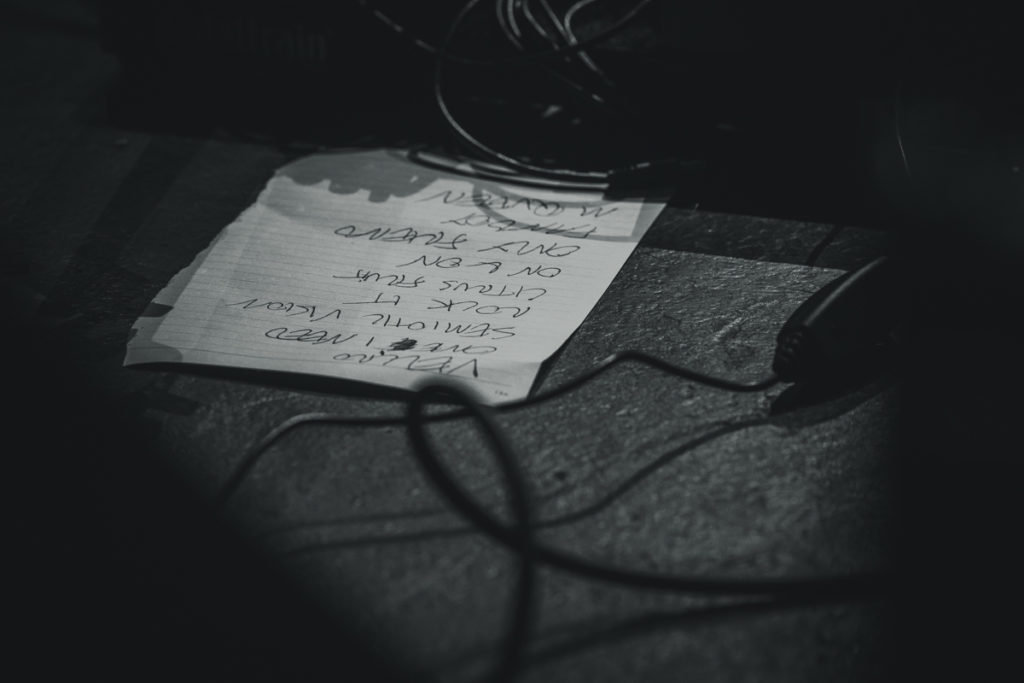 VELCRO
ONE I NEED
SEMIOTIC VISION
ROCK IT
CITRUS FRUIT
ON & ON
ONLY FRIEND
M QUEEN